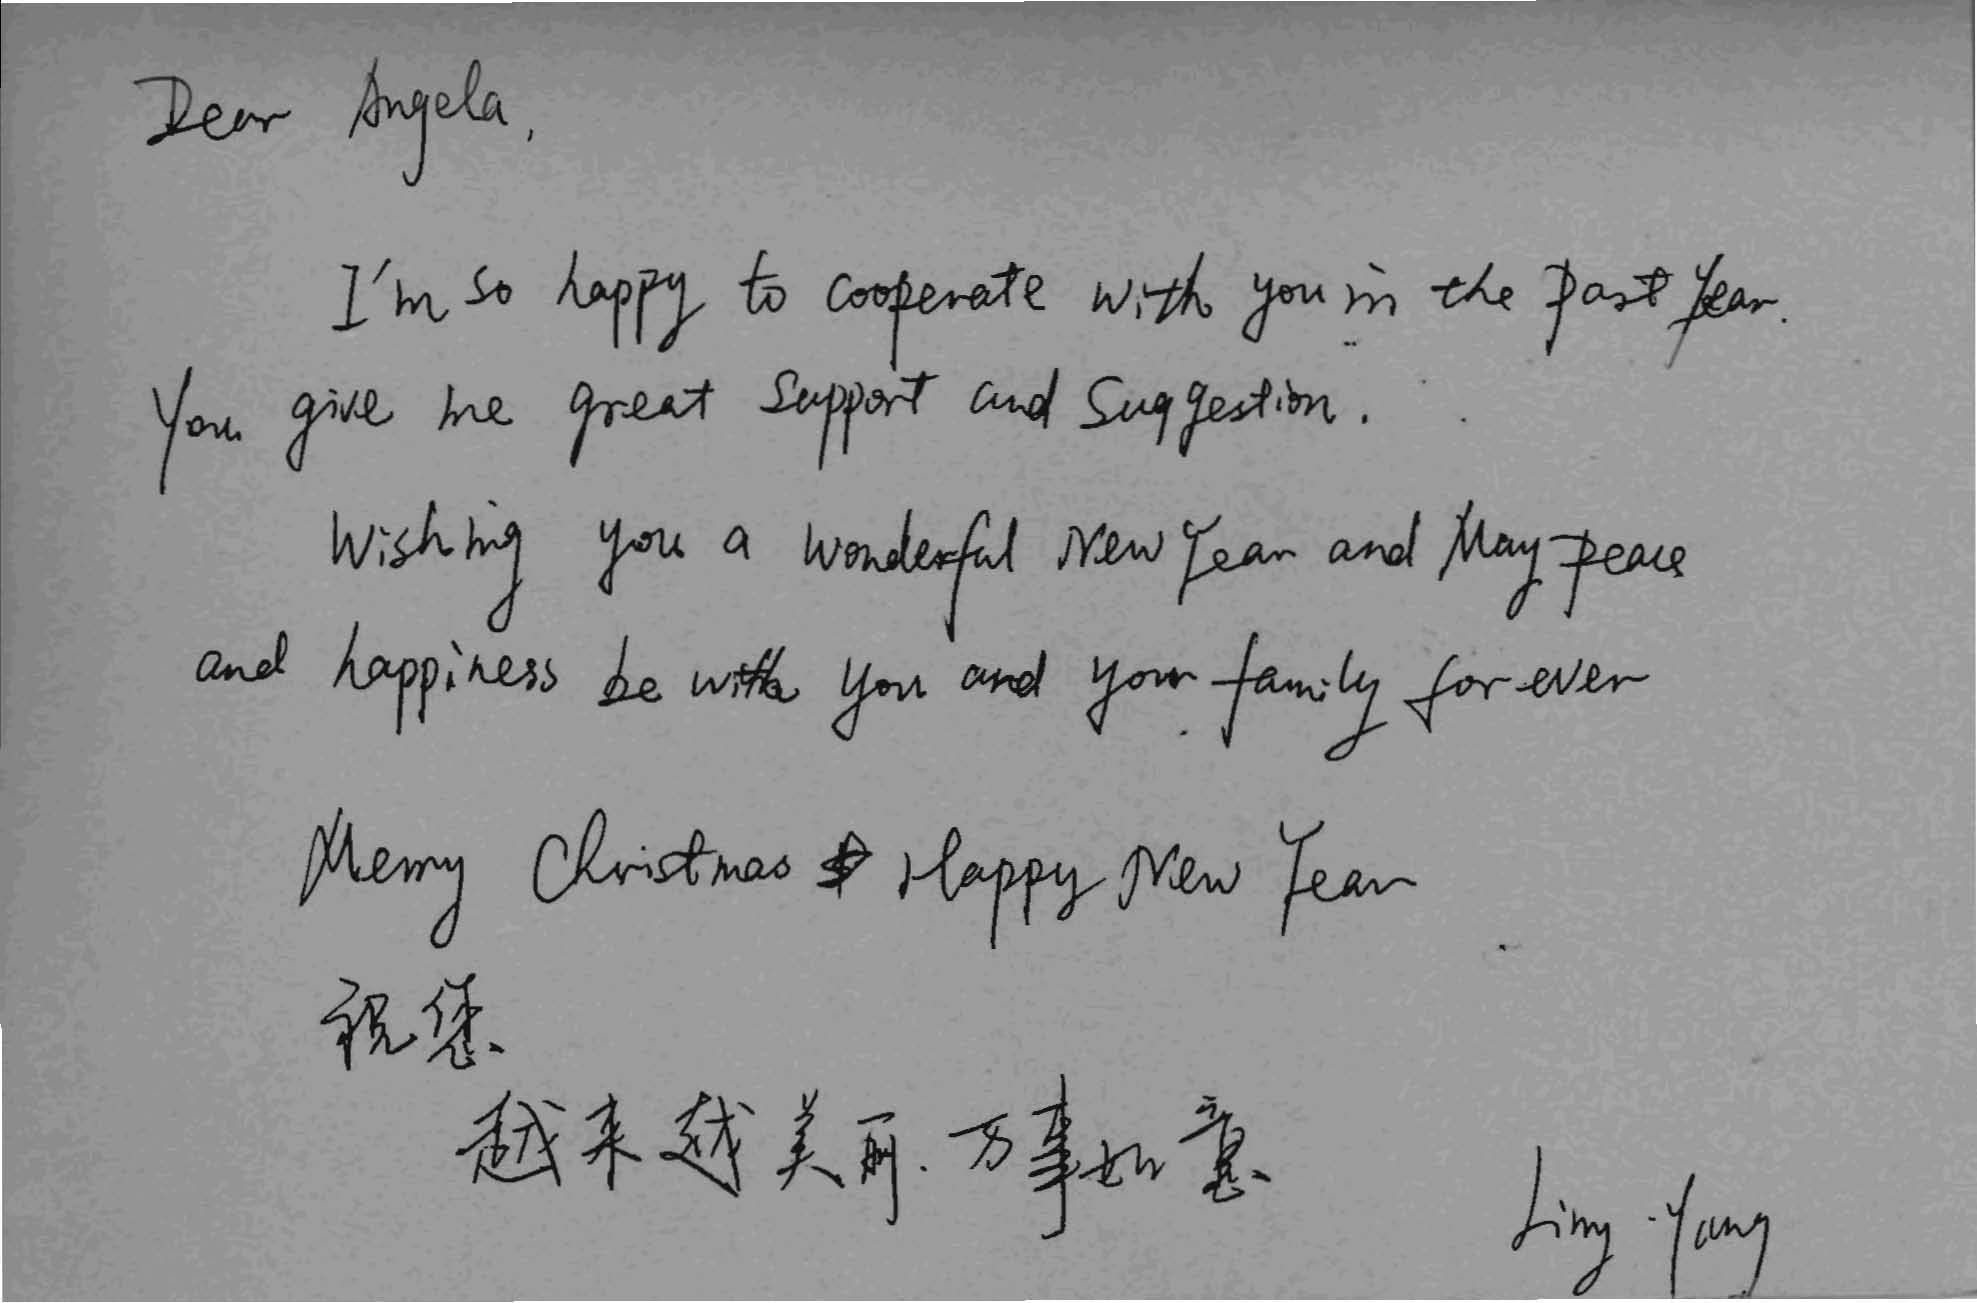 Dear Angela,
I'm so happy to cooperate with you in the past year.
You give me great support and suggestion.
Wishing you a wonderful New Year and May peace
and happiness be with you and your family for ever
Merry Christmas & Happy New Year
祝您
越来越美丽.万事如意
Ling Yang